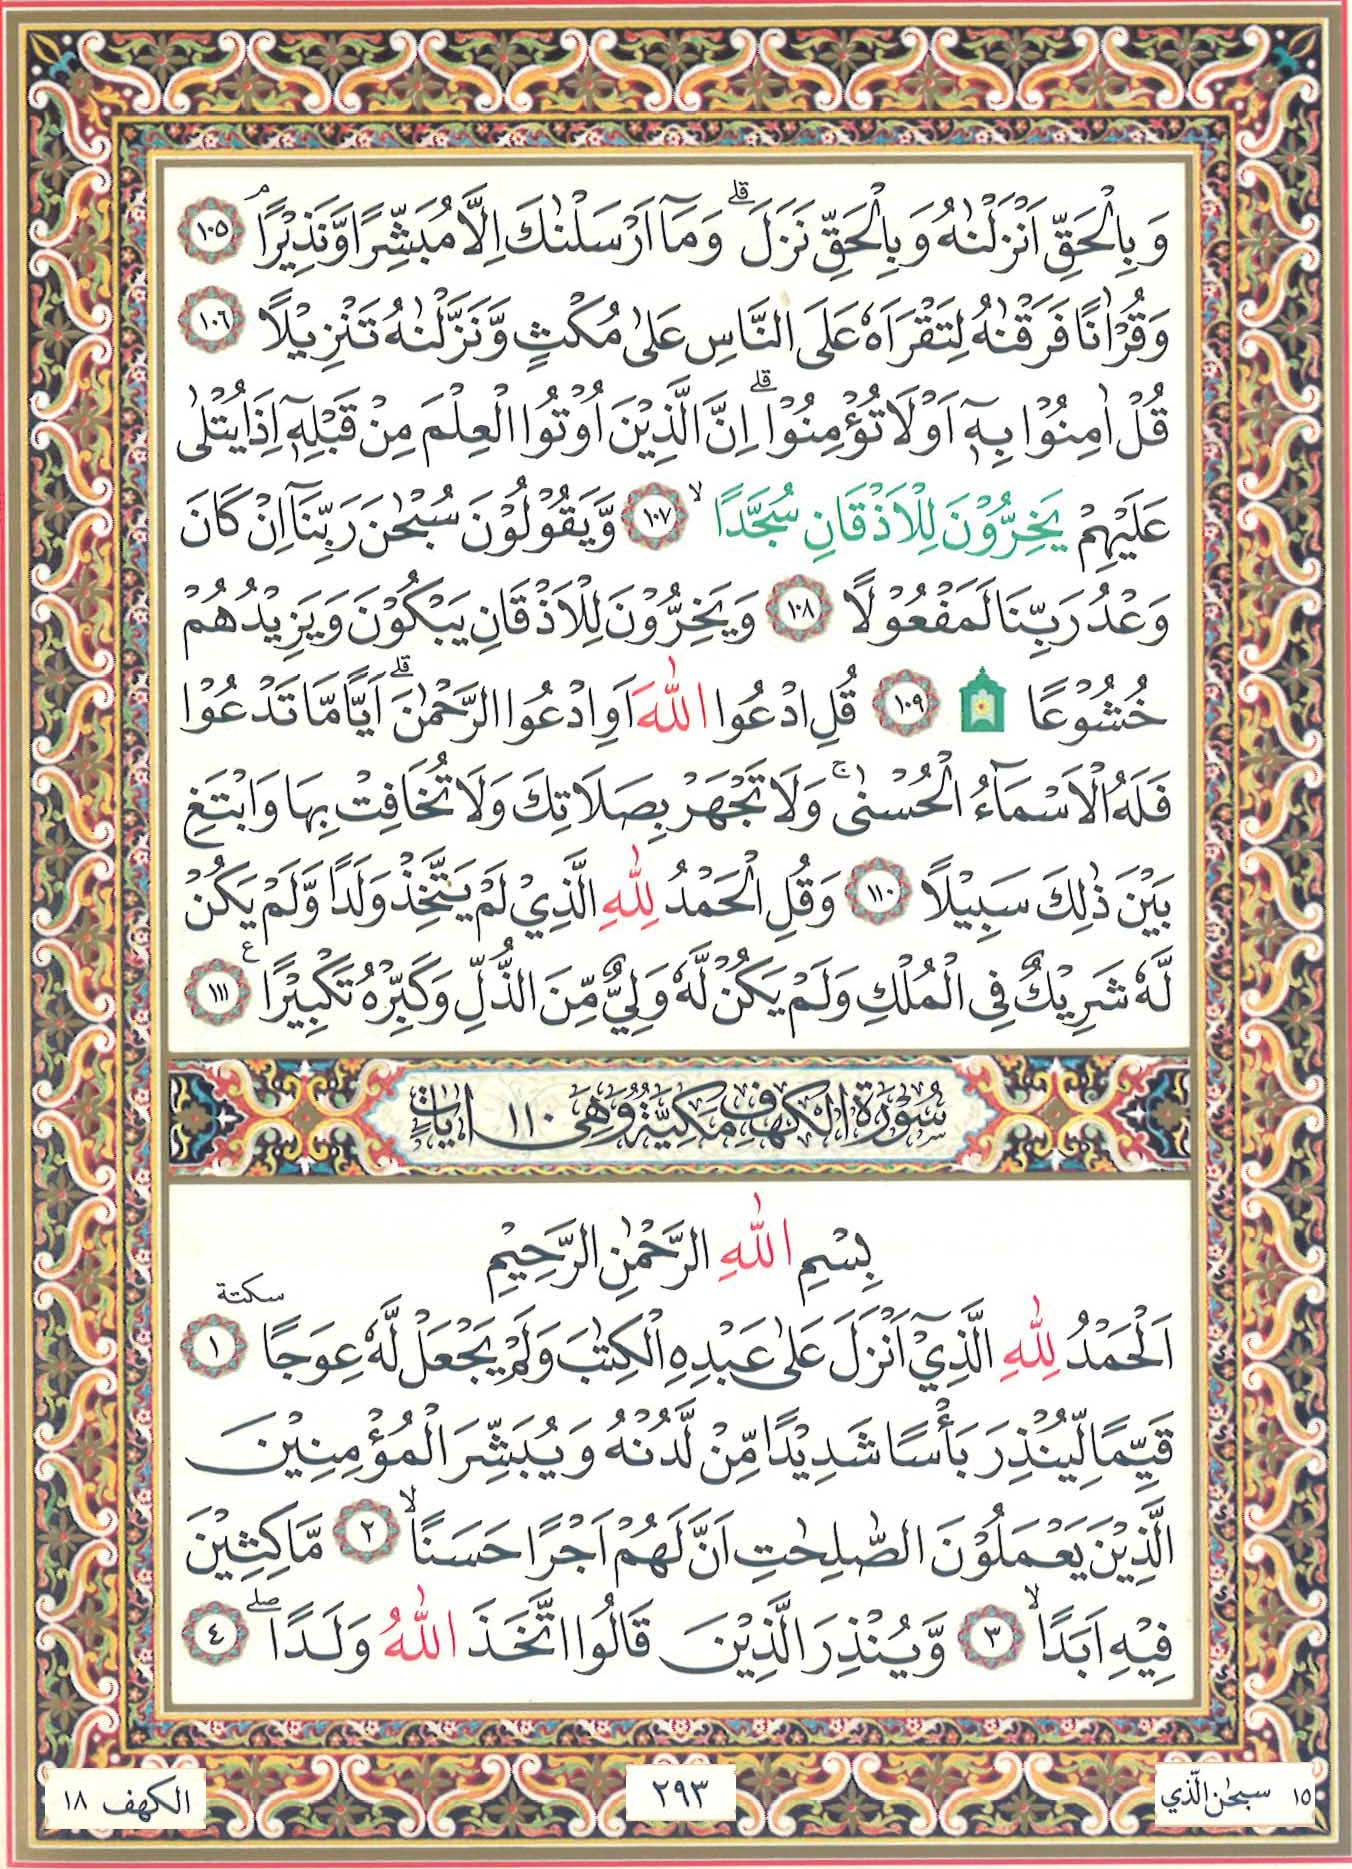 وَبِالْحَقِّ اَنْزَلْنٰهُ وَبِالْحَقِّ نَزَلَ ۗ وَمَآ اَرْسَلْنٰكَ اِلَّا مُبَشِّرًا وَّنَذِيْرًا ۘ ١٠٥
وَقُرْاٰنًا فَرَقْنٰهُ لِتَقْرَاَهٗ عَلَى النَّاسِ عَلٰى مُكْثٍ وَّنَزَّلْنٰهُ تَنْزِيْلًا ١٠٦
قُلْ اٰمِنُوْا بِهٖٓ اَوْ لَا تُؤْمِنُوْا ۗ اِنَّ الَّذِيْنَ اُوْتُوا الْعِلْمَ مِنْ قَبْلِهٖٓ اِذَا يُتْلٰى
عَلَيْهِمْ يَخِرُّوْنَ لِلْاَذْقَانِ سُجَّدًا ۙ ١٠٧ وَّيَقُوْلُوْنَ سُبْحٰنَ رَبِّنَآ اِنْ كَانَ
وَعْدُ رَبِّنَا لَمَفْعُوْلًا ١٠٨ وَيَخِرُّوْنَ لِلْاَذْقَانِ يَبْكُوْنَ وَيَزِيْدُهُمْ
خُشُوْعًا ۩ ١٠٩ قُلِ ادْعُوا اللّٰهَ اَوِ ادْعُوا الرَّحْمٰنَ ۗ اَيًّا مَّا تَدْعُوْا
فَلَهُ الْاَسْمَآءُ الْحُسْنٰى ۚ وَلَا تَجْهَرْ بِصَلَاتِكَ وَلَا تُخَافِتْ بِهَا وَابْتَغِ
بَيْنَ ذٰلِكَ سَبِيْلًا ١١٠ وَقُلِ الْحَمْدُ لِلّٰهِ الَّذِيْ لَمْ يَتَّخِذْ وَلَدًا وَّلَمْ يَكُنْ
لَّهٗ شَرِيْكٌ فِى الْمُلْكِ وَلَمْ يَكُنْ لَّهٗ وَلِيٌّ مِّنَ الذُّلِّ وَكَبِّرْهُ تَكْبِيْرًا ع ١١١
سُوْرَةُ الْكَهْفِ مَكِّيَّةٌ وَهِيَ ١١٠ اٰيَاتٍ
بِسْمِ اللّٰهِ الرَّحْمٰنِ الرَّحِيْمِ
اَلْحَمْدُ لِلّٰهِ الَّذِيْٓ اَنْزَلَ عَلٰى عَبْدِهِ الْكِتٰبَ وَلَمْ يَجْعَلْ لَّهٗ عِوَجًا سكتة ١
قَيِّمًا لِّيُنْذِرَ بَأْسًا شَدِيْدًا مِّنْ لَّدُنْهُ وَيُبَشِّرَ الْمُؤْمِنِيْنَ
الَّذِيْنَ يَعْمَلُوْنَ الصّٰلِحٰتِ اَنَّ لَهُمْ اَجْرًا حَسَنًا ۙ ٢ مَّاكِثِيْنَ
فِيْهِ اَبَدًا ۙ ٣ وَّيُنْذِرَ الَّذِيْنَ قَالُوا اتَّخَذَ اللّٰهُ وَلَدًا ۖ ٤
١٥ سبحٰن الّذي ٢٩٣ الكهف ١٨